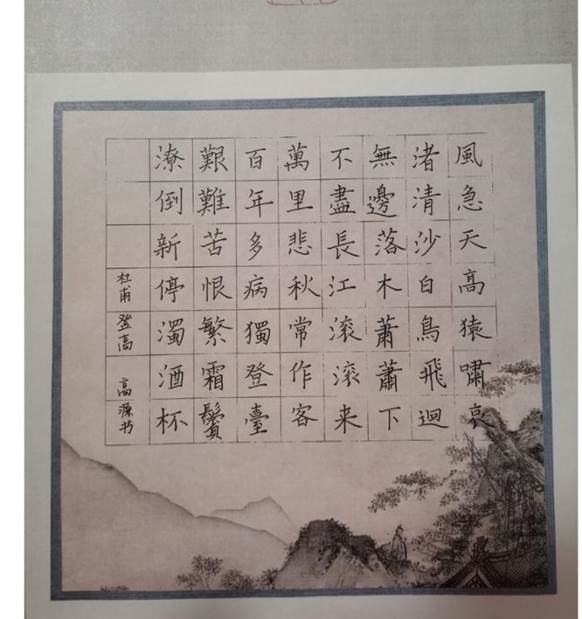 風急天高猿嘯哀
渚清沙白鳥飛迴
無邊落木蕭蕭下
不盡長江滾滾来
萬里悲秋常作客
百年多病獨登臺
艱難苦恨繁霜鬢
潦倒新停濁酒杯
杜甫 登高 高源书